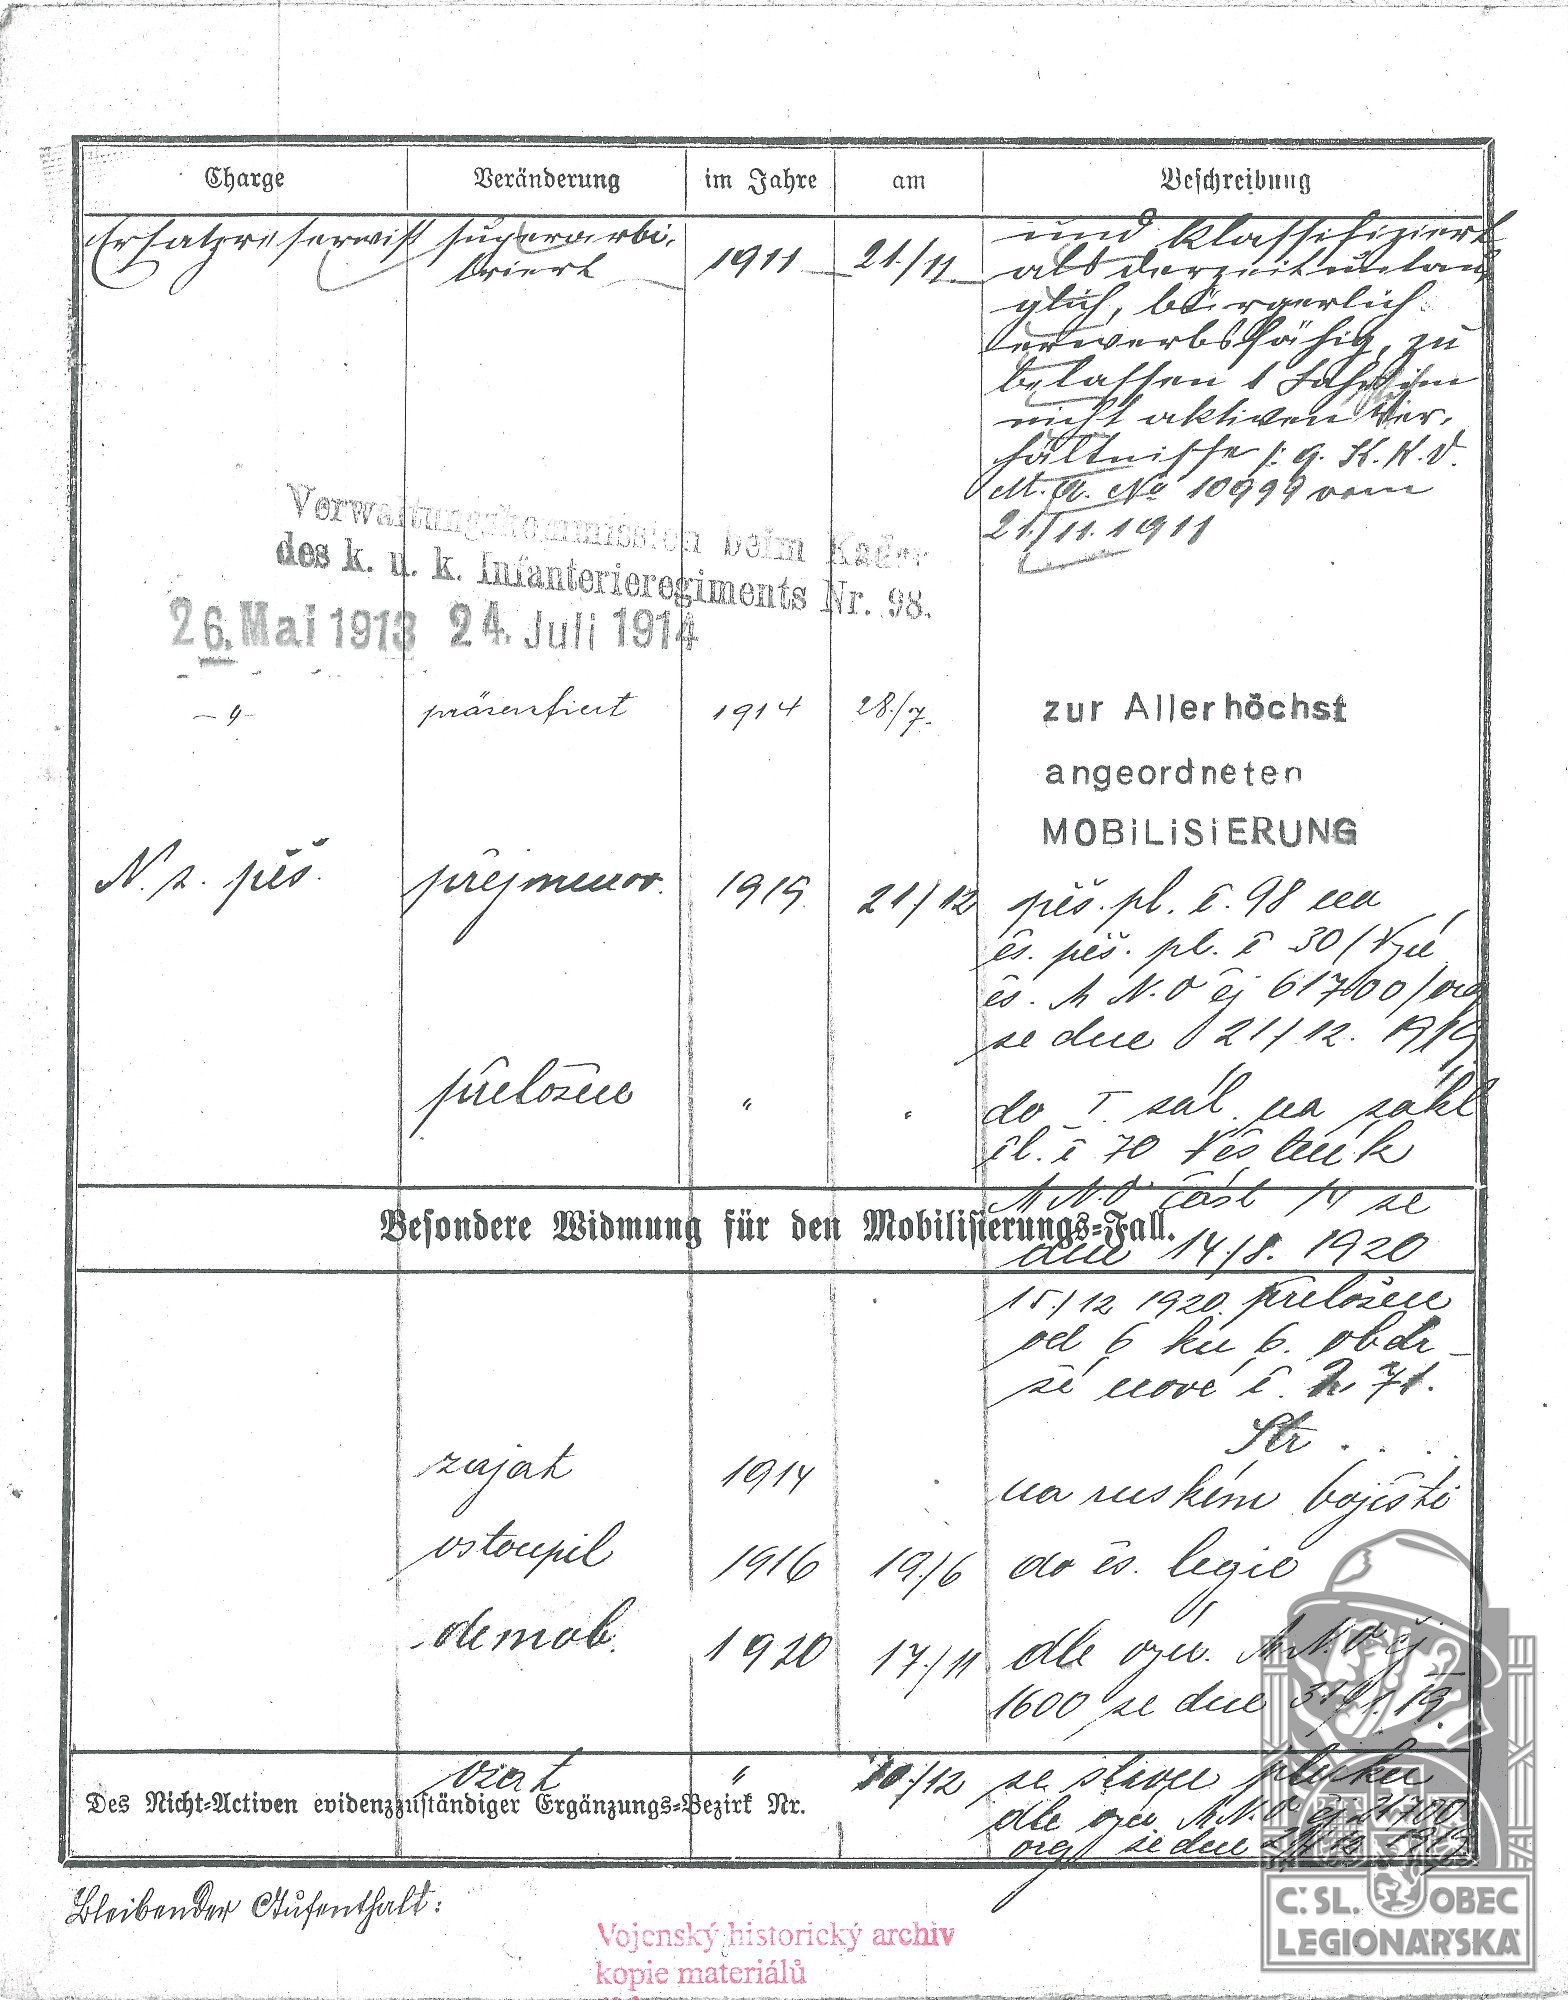 Charge Veränderung im Jahre am Beschreibung
Ersatzreservist superarbi- 1911 21./11. und klassifiziert
triert als derzeit untau-
glich, bürgerlich
erwerbsfähig, zu
belassen 1 Jahr im
nicht aktiven Ver-
hältnisse /: g. K. K. V.
M. A. No 10999 vom
21./11. 1911
Verwaltungskommission beim Kader
des k. u. k. Infanterieregiments Nr. 98.
26. Mai 1913 24. Juli 1914
präsentiert 1914 28./7. zur Allerhöchst
angeordneten
MOBiLiSiERUNG
N. z. pěš. přejmenov. 1919 21/12 pěš. pl. č. 98 na
čs. pěš. pl. č 30 / Výn
čs. M N.O čj 61700/org
ze dne 21/12. 1919
přeložen " " do I. zál. na zákl
čl. č 70 Věstník
M N.O část 14 ze
Besondere Widmung für den Mobilisierungs-Fall.
dne 14./8. 1920
15./12 1920. přeložen
od 6 ku 6. obdr-
ží nové č. 71.
Str . . . .
zajat 1914 na ruském bojišti
vstoupil 1916 19./6 do čs. legie
demob. 1920 17./11 dle výn. M N.O čj
1600 ze dne 31/1. 19.
vzat " 10./12 ze stavu pluku
Des Nicht-Activen evidenzzuständiger Ergänzungs-Bezirk Nr.
dle výn. M N.O čj 21700
org ze dne 1919
Bleibender Aufenthalt:
Č. SL. OBEC
LEGIONÁŘSKÁ
Vojenský historický archiv
kopie materiálů